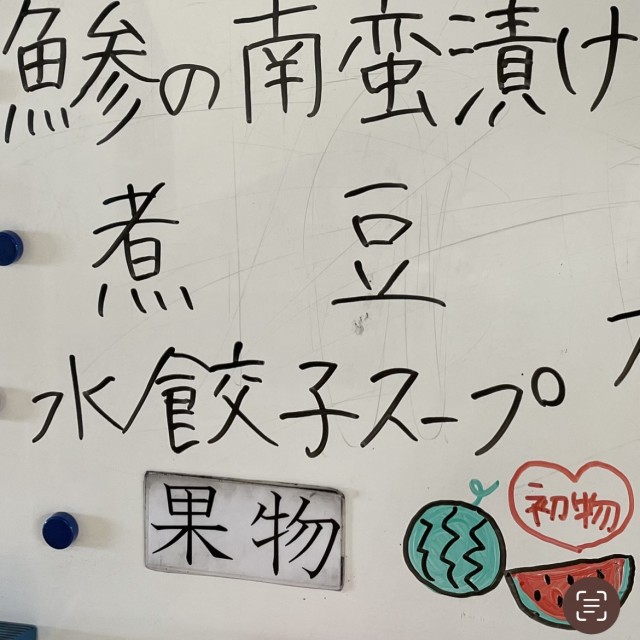 鯵の南蛮漬け
煮豆
水餃子スープ
果物
初物